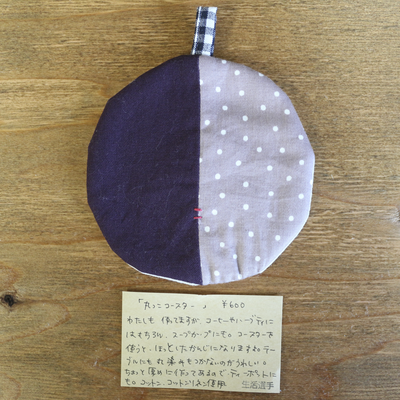 「丸っこコースター」 ¥600
わたしも 使ってますが、コーヒーやハーブティに
はもちろん、スープカップにも。コースターを
使うと、ほっとしたかんじになりますよ。テー
ブルにも 丸 染みもつかないのがうれしい。
ちょっと厚めに作ってあるので、ティーポットに
も。コットン、コットンリネン使用 生活道季